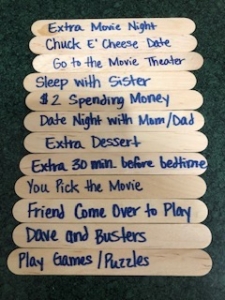 Extra Movie Night
Chuck E' Cheese Date
Go to the Movie Theater
Sleep with Sister
$2 Spending Money
Date Night with Mom/Dad
Extra Dessert
Extra 30 min. before bedtime
You Pick the Movie
Friend Come Over to Play
Dave and Busters
Play Games/Puzzles